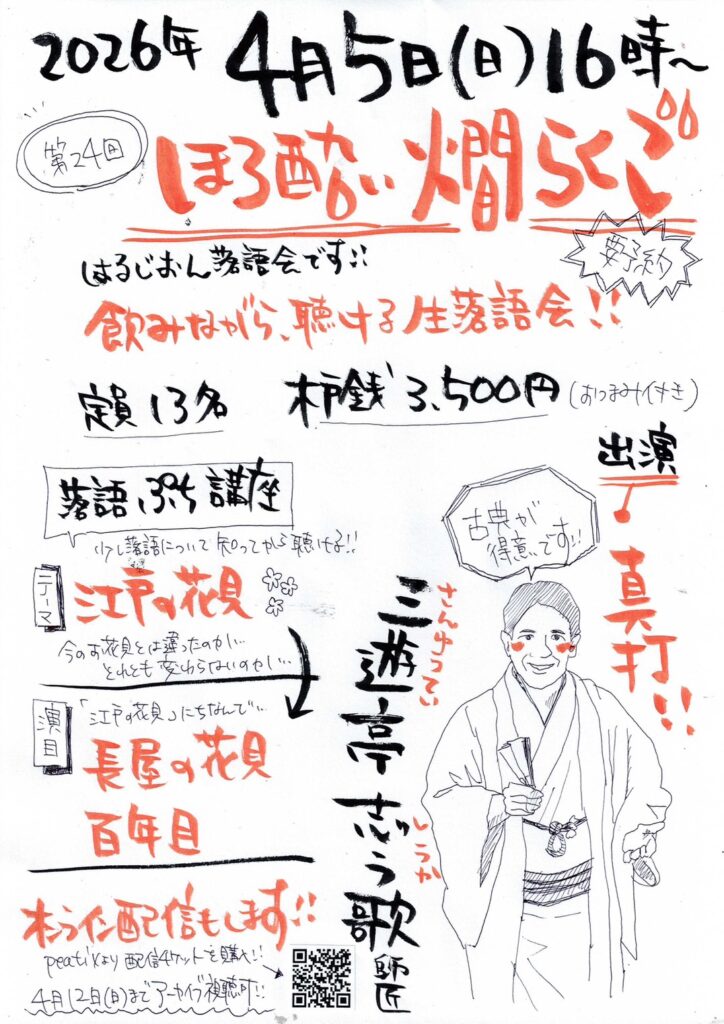 2026年 4月5日(日)16時~
第24回
ほろ酔い燗らくご
要予約
はるじおん落語会です!!
飲みながら、聴ける生落語会!!
定員13名 木戸銭3,500円(おつまみ付き)
落語ぷち講座
少し落語について知ってから聴ける!!
テーマ
江戸の花見
今のお花見とは違ったのか…
それとも変わらないのか…
演目
「江戸の花見」にちなんで…
長屋の花見
百年目
出演
真打!!
古典が
得意です!!
さんゆうてい
三遊亭 志う歌 師匠
しうか
オンライン配信もします!!
peatixより配信チケットを購入!!
4月12日(日)までアーカイブ視聴可!!